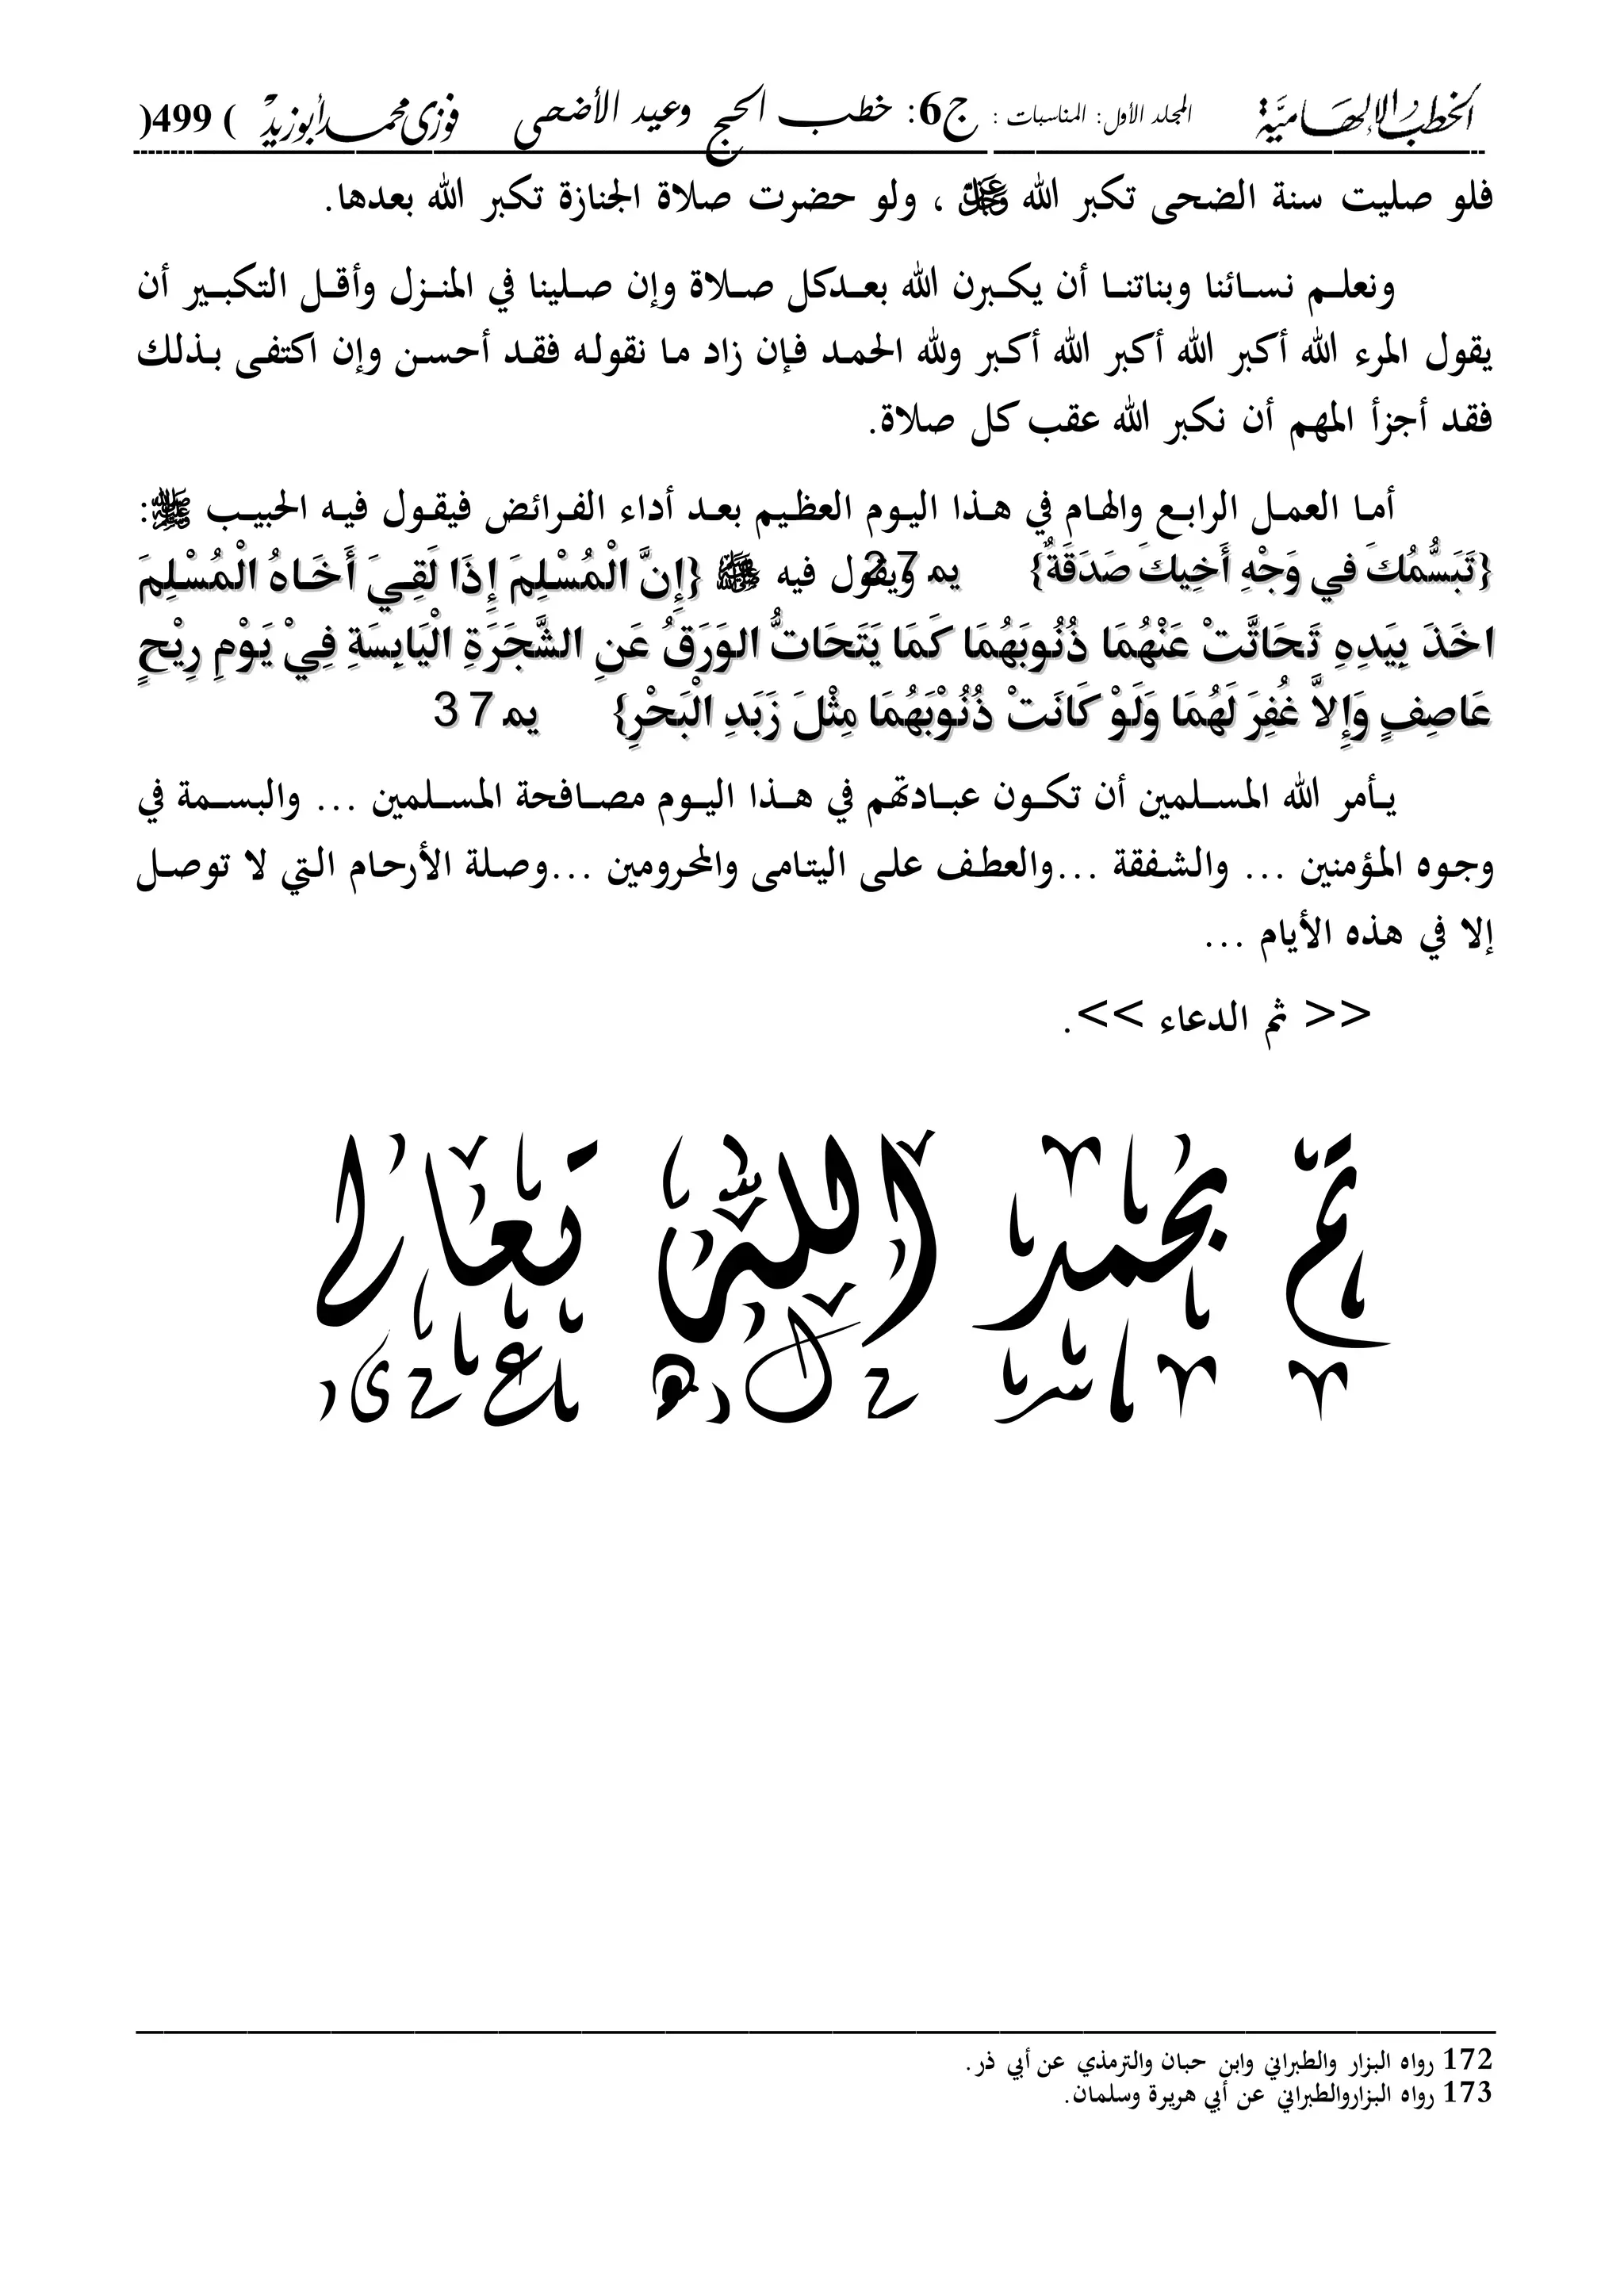 الخطب الإلهامية المجلد الأول: المناسبات : ج6: خطب الحج وعيد الأضحى فوزى محمد أبوزيد (499)
فلو صليت سنة الضحى تكبر الله عز وجل ، ولو حضرت صلاة الجنازة تكبر الله بعدها.
ونعلم نسائنا وبناتنا أن يكبرن الله بعدكل صلاة وإن صلينا في المنزل وأقل التكبير أن
يقول المرء الله أكبر الله أكبر الله أكبر ولله الحمد فإن زاد ما نقوله فقد أحسن وإن اكتفى بذلك
فقد أجزأ المهم أن نكبر الله عقب كل صلاة.
أما العمل الرابع والهام في هذا اليوم العظيم بعد أداء الفرائض فيقول فيه الحبيب ﷺ:
{تَبَسُّمُكَ في وَجْهِ أَخِيكَ صَدَقَةٌ} يم27 ويقول فيه ﷺ {إِنَّ الْمُسْلِمَ إِذَا لَقِيَ أَخَاهُ الْمُسْلِمَ
اخَذَ بِيَدِهِ تَحَاتَّتْ عَنْهُمَا ذُنُوبَهُمَا كَمَا يَتَحَاتُّ الوَرَقُ عَنِ الشَّجَرَةِ الْيَابِسَةِ فِيْ يَوْمِ رِيْحٍ
عَاصِفٍ وَإِلاَّ غُفِرَ لَهُمَا وَلَوْ كَانَتْ ذُنُوْبَهُمَا مِثْلَ زَبَدِ الْبَحْرِ} يم37
يأمر الله المسلمين أن تكون عبادتهم في هذا اليوم مصافحة المسلمين ... والبسمة في
وجوه المؤمنين ... والشفقة ...والعطف على اليتامى والمحرومين ...وصلة الأرحام التي لا توصل
إلا في هذه الأيام ...
<< ثم الدعاء >>.
تم بحمد الله تعالى
172 رواه البزار والطبراني وابن حبان والترمذي عن أبي ذر.
173 رواه البزاروالطبراني عن أبي هريرة وسلمان.